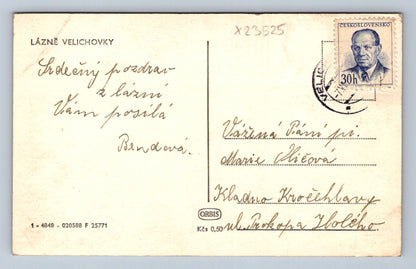 LÁZNĚ VELICHOVKY
x23525
ČESKOSLOVENSKO
30h
VELIC
Srdečný pozdrav
z lázní
Vám posílá
Brndová.
Vážená Paní pí.
Marie
Kladno Kročehlavy
ul. Prokopa Holého.
ORBIS
Kčs 0,50
1 - 4848 - 020588 F 25771